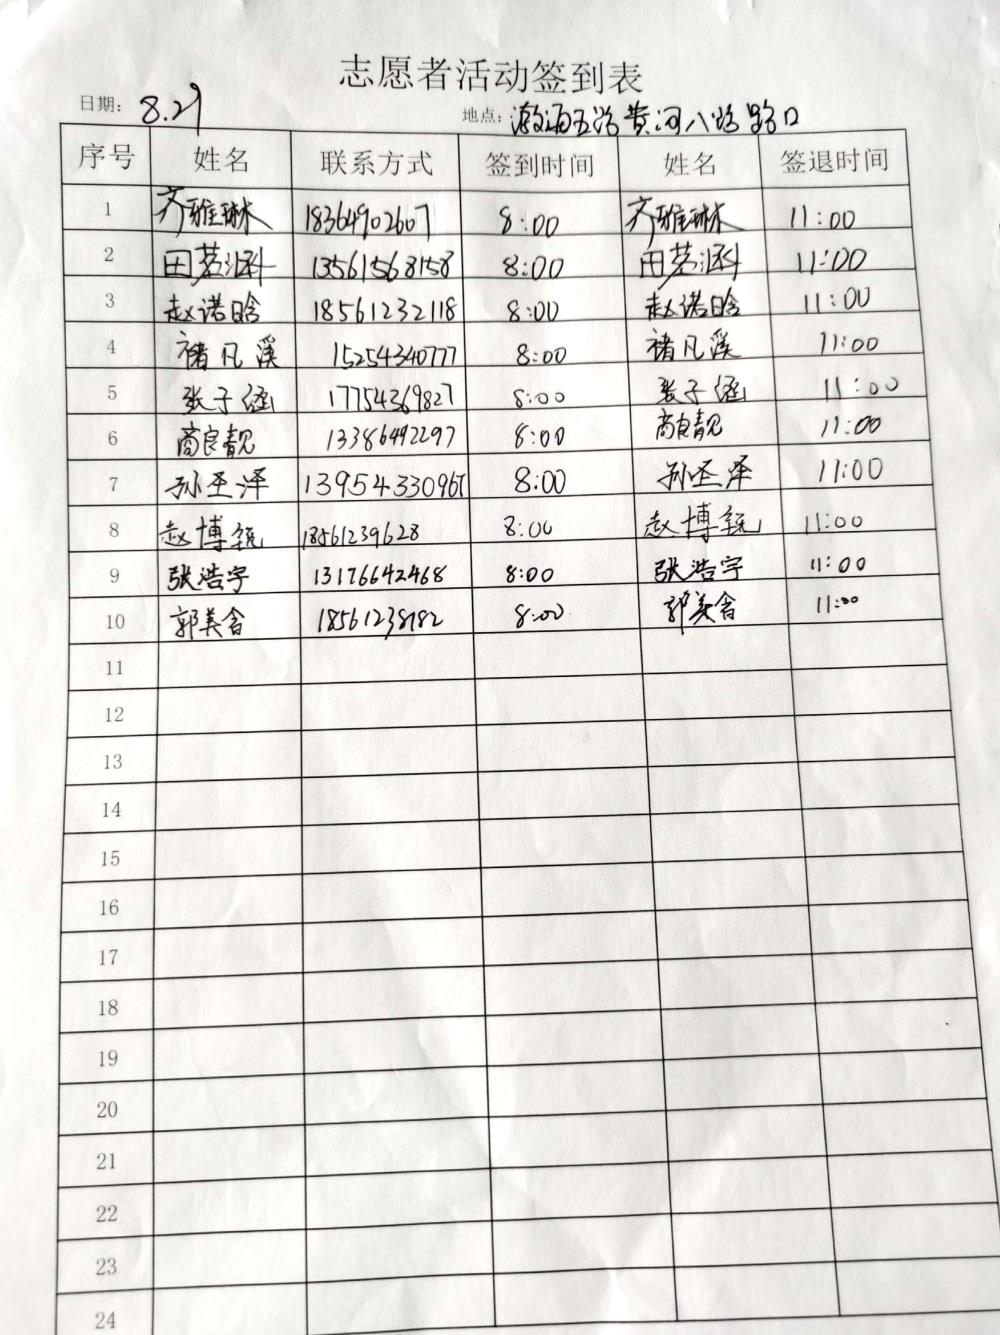 志愿者活动签到表
日期: 8.29 地点: 渤海五路黄河八路路口
序号 姓名 联系方式 签到时间 姓名 签退时间
1 齐雅琳 18364902607 8:00 齐雅琳 11:00
2 田茗涵 13561568158 8:00 田茗涵 11:00
3 赵诺晗 18561232118 8:00 赵诺晗 11:00
4 褚凡溪 15254340777 8:00 褚凡溪 11:00
5 张子涵 17754369827 8:00 张子涵 11:00
6 商良靓 13386492297 8:00 商良靓 11:00
7 孙圣泽 13954330967 8:00 孙圣泽 11:00
8 赵博锐 18561239628 8:00 赵博锐 11:00
9 张浩宇 13176642468 8:00 张浩宇 11:00
10 郭美含 18561238182 8:00 郭美含 11:00
11
12
13
14
15
16
17
18
19
20
21
22
23
24